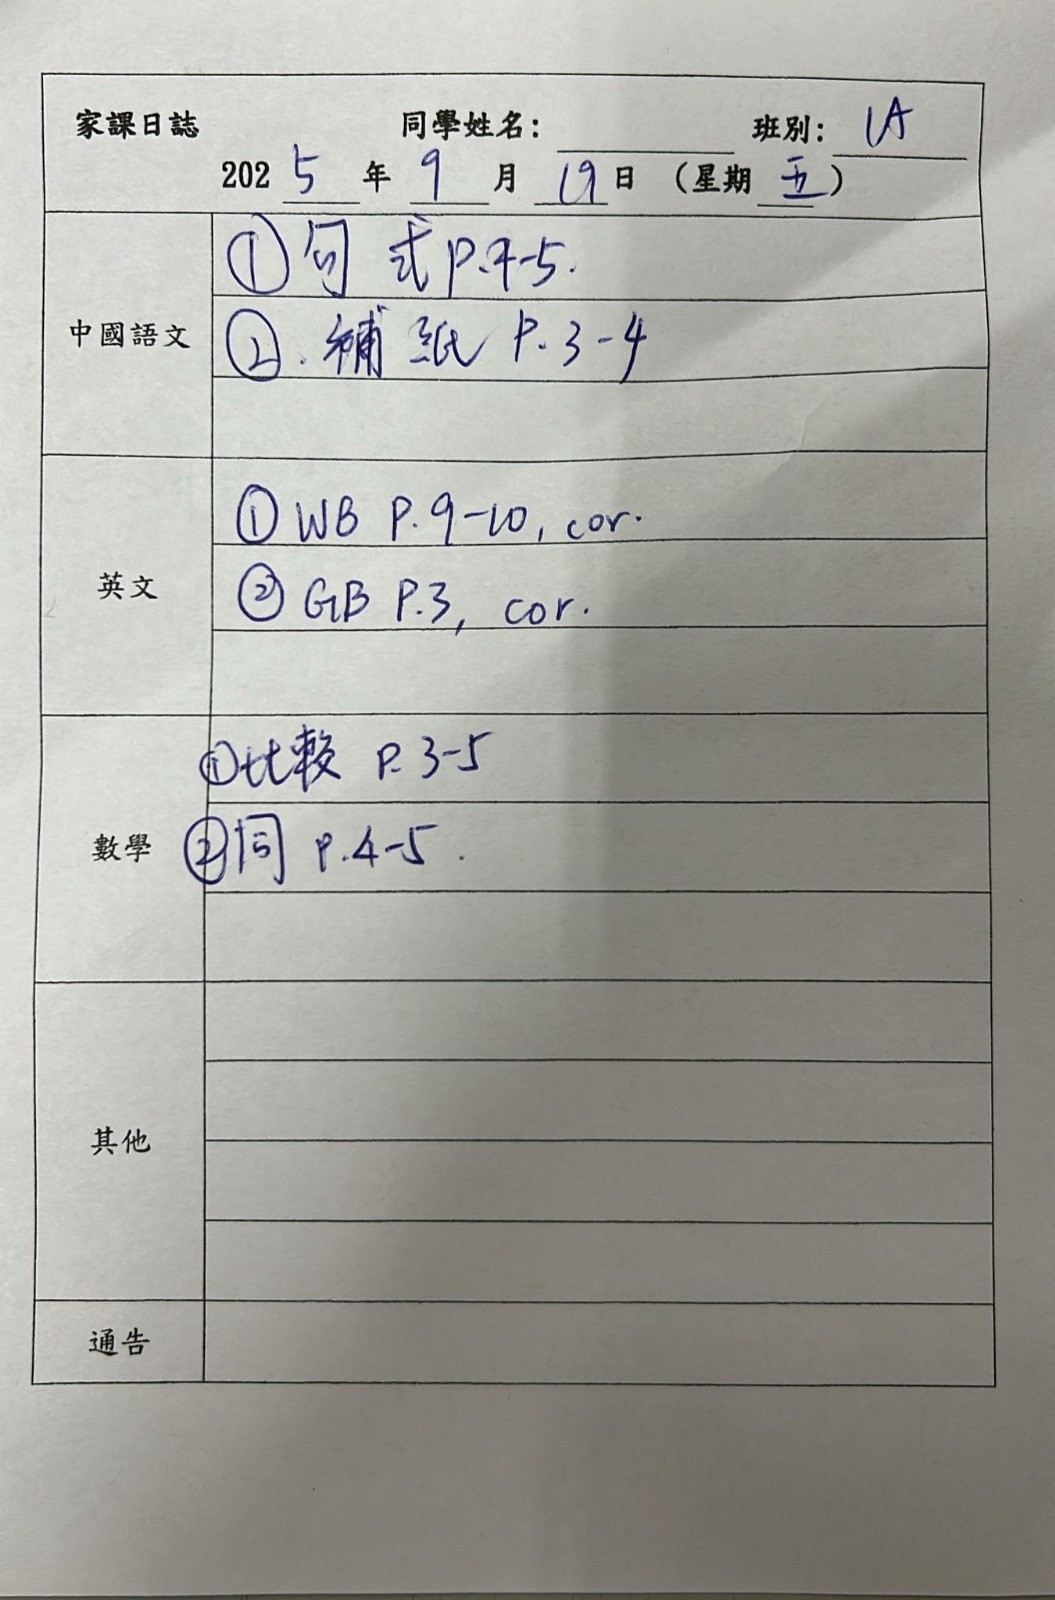 家課日誌 同學姓名: 班別: 1A
2025年9月19日 (星期五)
中國語文
① 句式 P.4-5.
②. 補紙 P.3-4
英文
① WB P.9-10, cor.
② GB P.3, cor.
數學
①比較 P.3-5
② P.4-5.
其他
通告